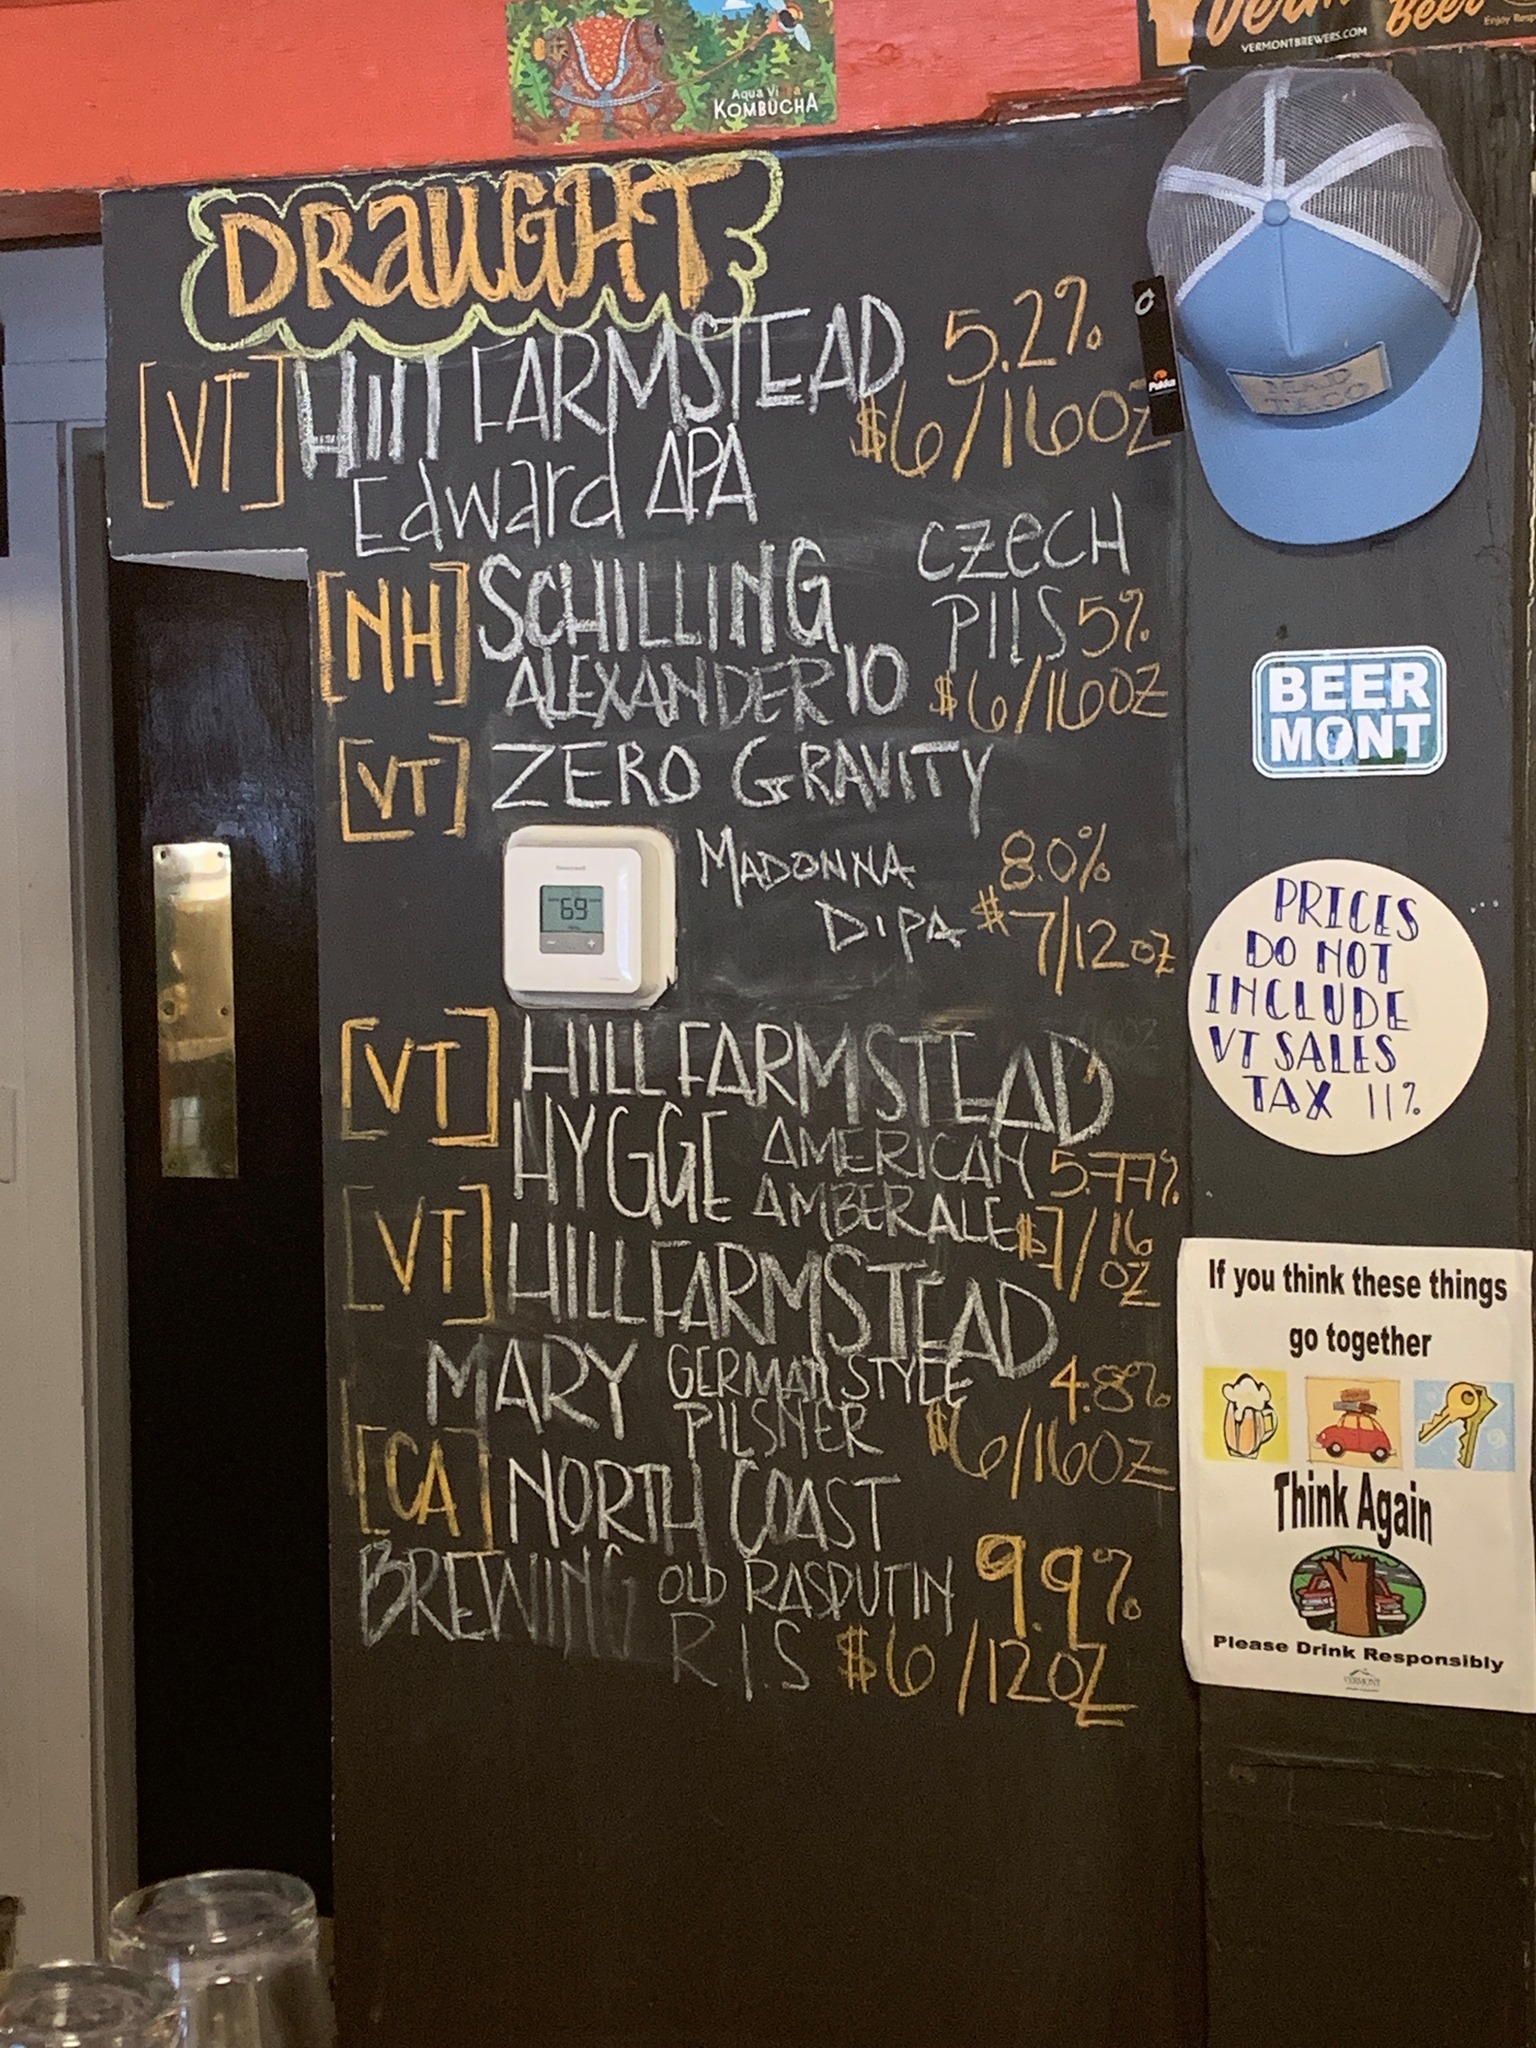 Aqua Vi a
KOMBUCHA
Verm
Beer
VERMONTBREWERS.COM
DRAUGHT
[VT] HILL FARMSTEAD 5.2%
Edward APA $6/16OZ
[NH] SCHILLING CZECH
PILS 5%
ALEXANDER 10 $6/16OZ
[VT] ZERO GRAVITY
MADONNA 8.0%
DIPA $7/12OZ
Honeywell
69
[VT] HILL FARMSTEAD
HYGGE AMERICAN 5.77%
AMBER ALE $7/16
OZ
[VT] HILL FARMSTEAD
MARY GERMAN STYLE 4.8%
PILSNER $6/16OZ
[CA] NORTH COAST
BREWING OLD RASPUTIN 9.9%
R.I.S $6/12OZ
Pukka
MAD
TACO
BEER
MONT
PRICES
DO NOT
INCLUDE
VT SALES
TAX 11%
If you think these things
go together
Think Again
Please Drink Responsibly
VERMONT